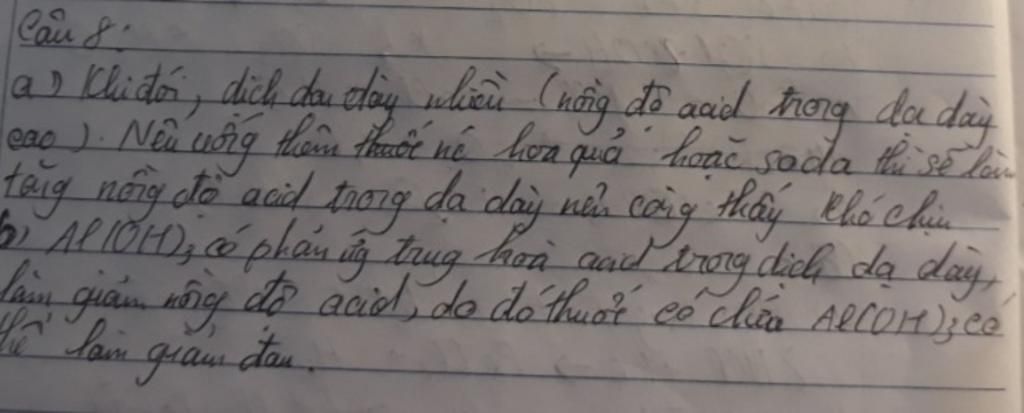 Câu 8:
a) Khi đói, dịch dạ dày nhiều (nồng độ acid trong dạ dày
cao). Nếu uống thêm thuốc nc hoa quả hoặc soda thì sẽ làm
tăng nồng độ acid trong dạ dày nên càng thấy khó chịu
b) Al(OH)3 có phản ứng trung hoà acid trong dịch dạ dày,
làm giảm nồng độ acid, do đó thuốc có chứa Al(OH)3 có
thể làm giảm đau.